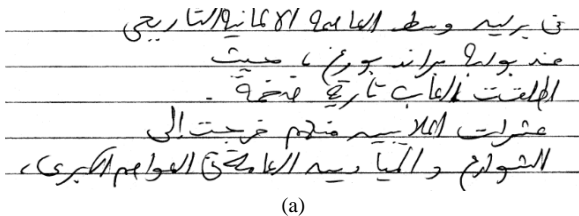 في برلين وسط العاصمة الألمانية التاريخي
عند بوابة براندنبورغ، حيث
اطلقت العاب نارية ضخمة.
عشرات الملايين منهم خرجت إلى
الشوارع والميادين العامة في العواصم الكبرى،
(a)